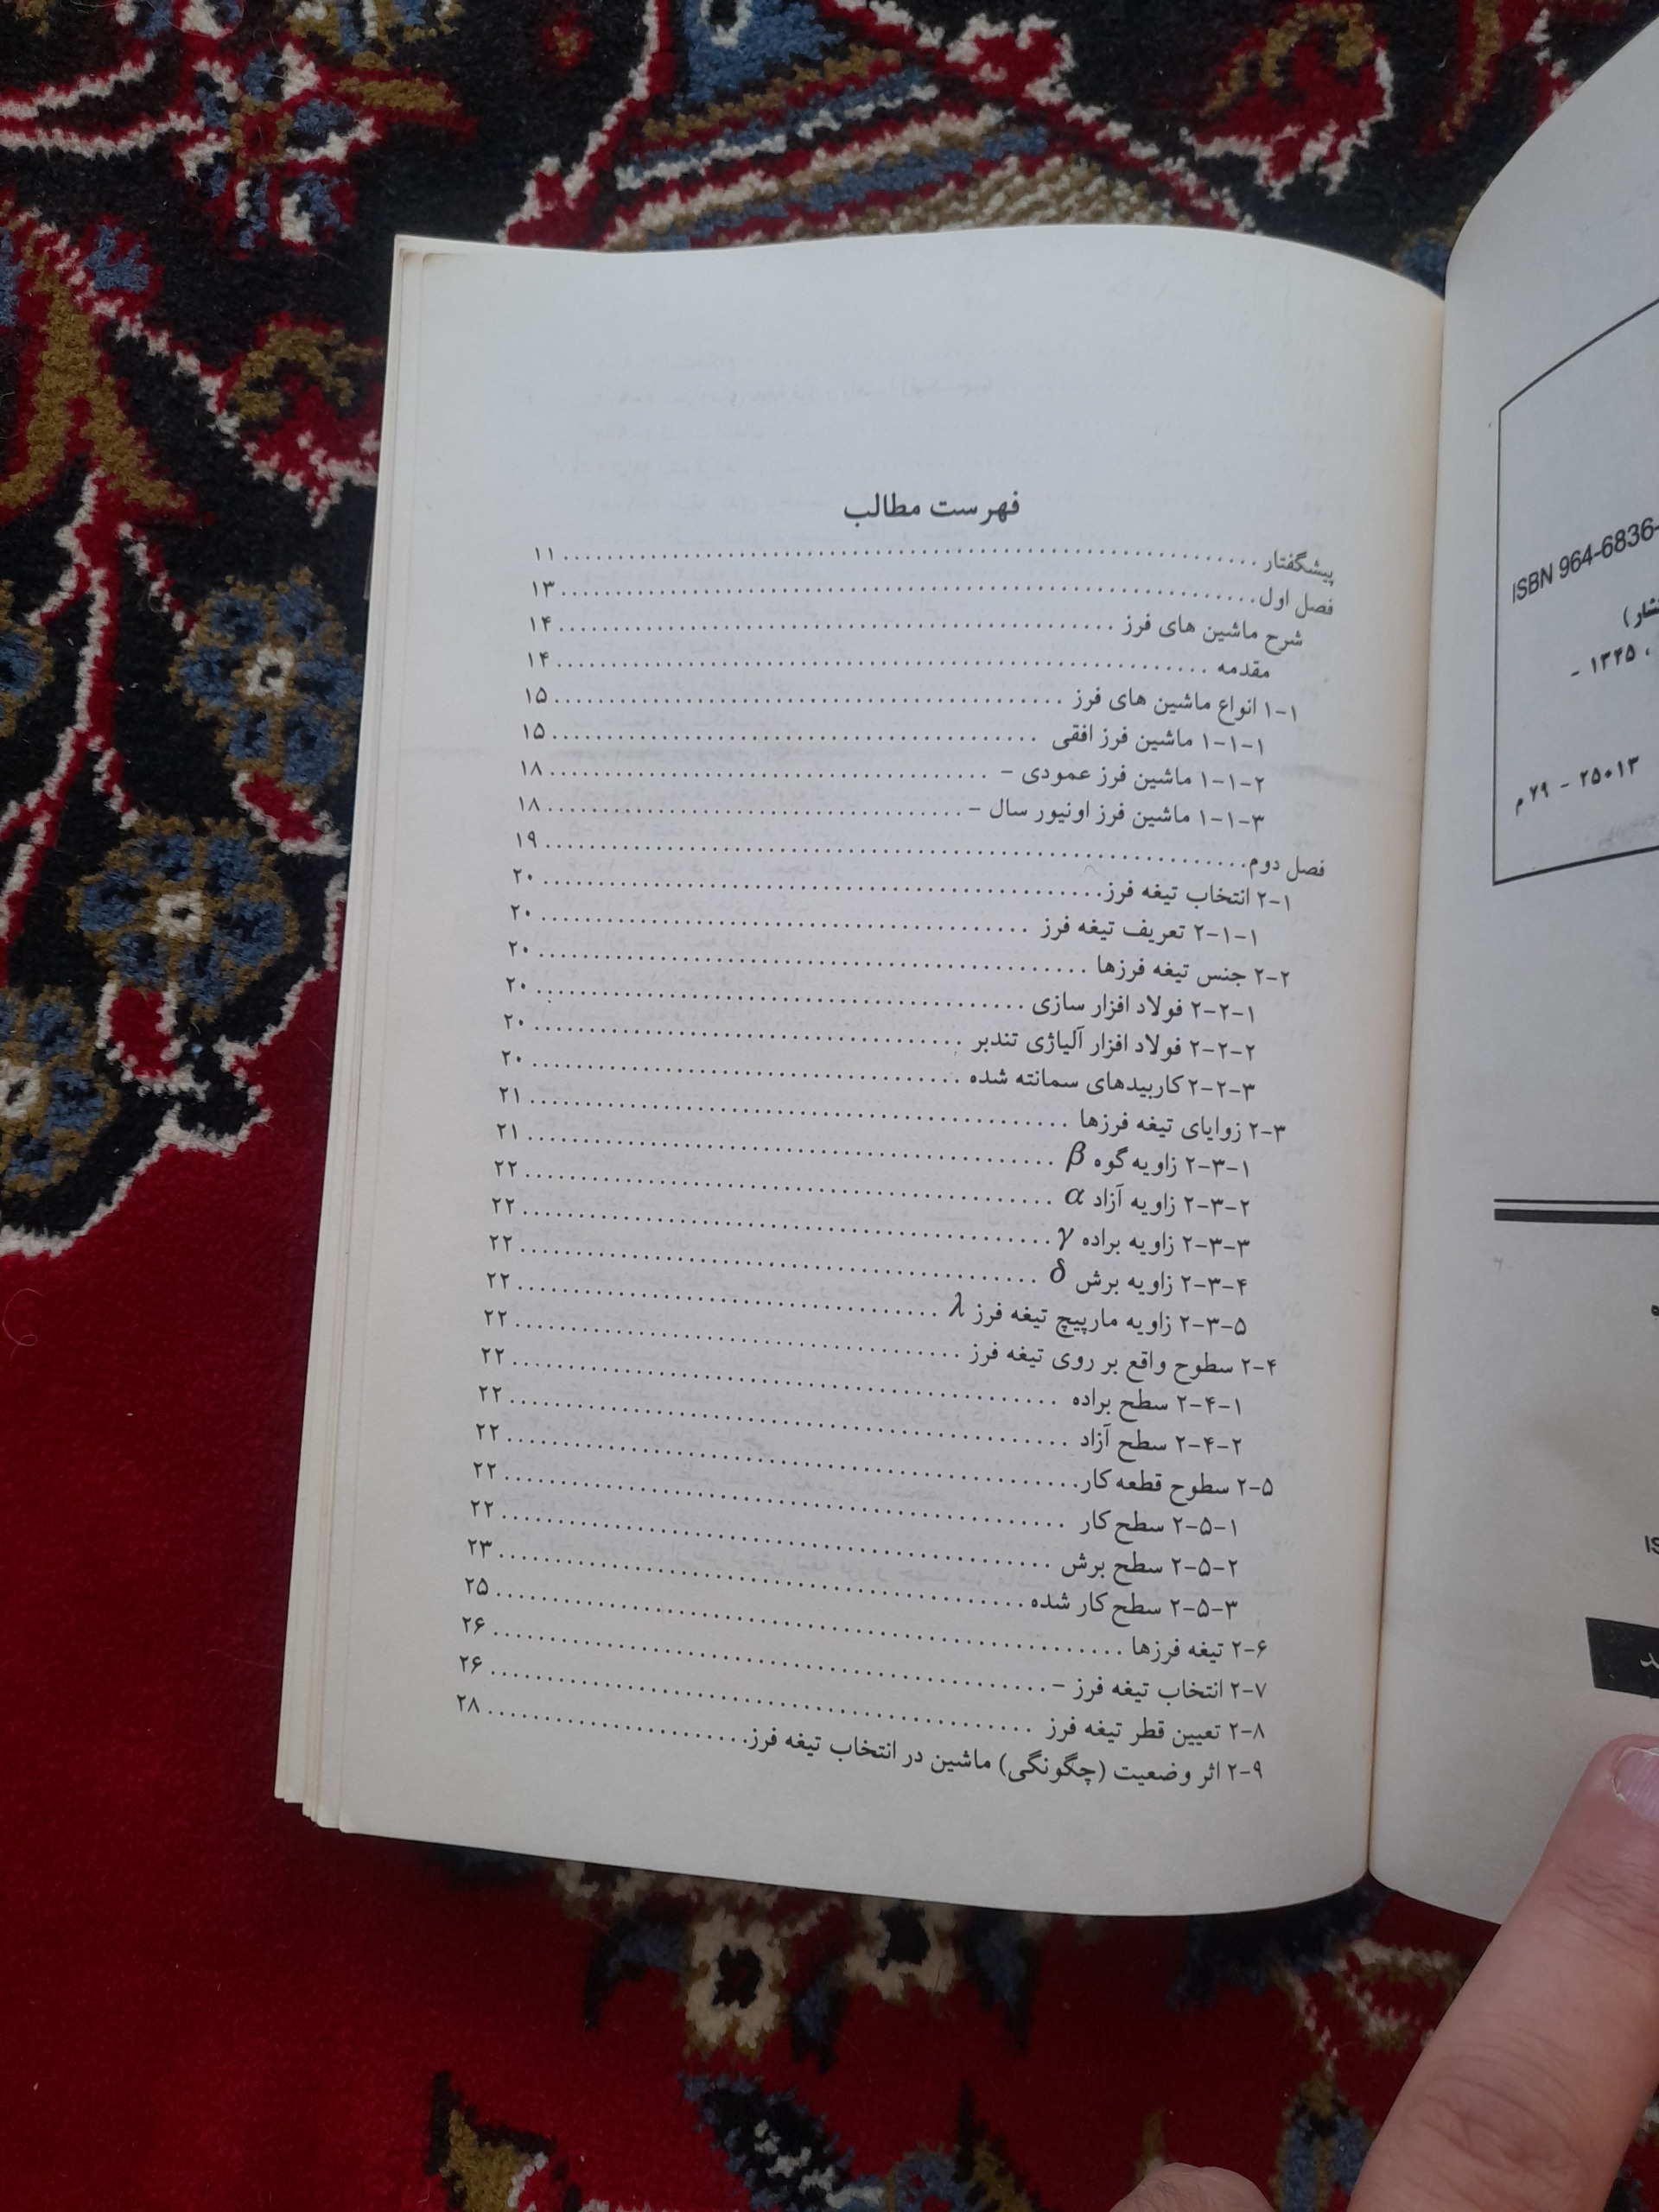 فهرست مطالب
پیشگفتار ........ ۱۱
فصل اول ........ ۱۳
شرح ماشین های فرز ........ ۱۴
مقدمه ........ ۱۴
۱-۱ انواع ماشین های فرز ........ ۱۵
۱-۱-۱ ماشین فرز افقی ........ ۱۵
۱-۱-۲ ماشین فرز عمودی - ........ ۱۸
۱-۱-۳ ماشین فرز اونیور سال - ........ ۱۸
فصل دوم ........ ۱۹
۲-۱ انتخاب تیغه فرز ........ ۲۰
۲-۱-۱ تعریف تیغه فرز ........ ۲۰
۲-۲ جنس تیغه فرزها ........ ۲۰
۲-۲-۱ فولاد افزار سازی ........ ۲۰
۲-۲-۲ فولاد افزار آلیاژی تندبر ........ ۲۰
۲-۲-۳ کاربیدهای سمانته شده ........ ۲۰
۲-۳ زوایای تیغه فرزها ........ ۲۱
۲-۳-۱ زاویه گوه β ........ ۲۱
۲-۳-۲ زاویه آزاد α ........ ۲۲
۲-۳-۳ زاویه براده γ ........ ۲۲
۲-۳-۴ زاویه برش δ ........ ۲۲
۲-۳-۵ زاویه مارپیچ تیغه فرز λ ........ ۲۲
۲-۴ سطوح واقع بر روی تیغه فرز ........ ۲۲
۲-۴-۱ سطح براده ........ ۲۲
۲-۴-۲ سطح آزاد ........ ۲۲
۲-۵ سطوح قطعه کار ........ ۲۲
۲-۵-۱ سطح کار ........ ۲۲
۲-۵-۲ سطح برش ........ ۲۲
۲-۵-۳ سطح کار شده ........ ۲۳
۲-۶ تیغه فرزها ........ ۲۵
۲-۷ انتخاب تیغه فرز - ........ ۲۶
۲-۸ تعیین قطر تیغه فرز ........ ۲۶
۲-۹ اثر وضعیت (چگونگی) ماشین در انتخاب تیغه فرز ........ ۲۸
ISBN 964-6836-
، ۱۳۴۵ -
۲۵۰۱۳ - ۷۹ م